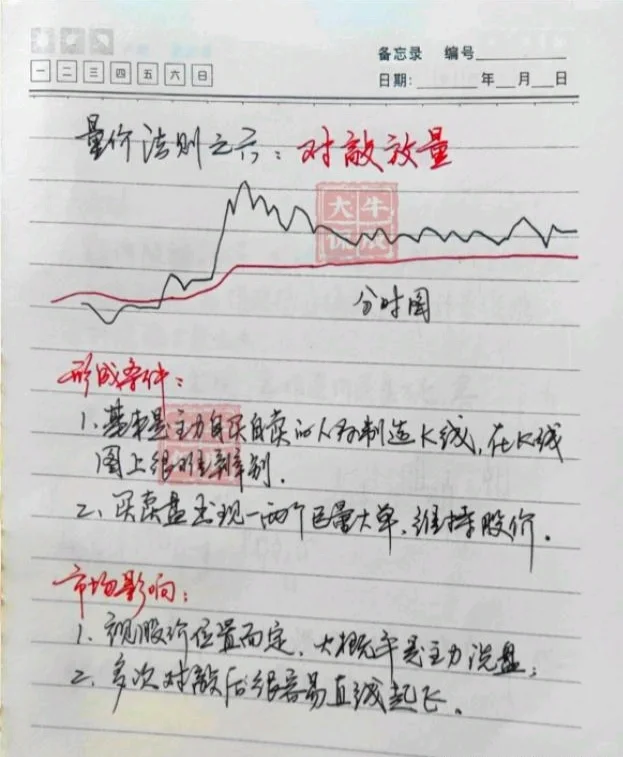 备忘录 编号
一 二 三 四 五 六 日
日期: 年 月 日
量价法则之六：对敲放量
大牛
保股
分时图
形成条件：
1、基本是主力自买自卖的人为制造K线，在K线
图上很难辨别．
2、买卖盘出现一两个巨量大单、维持股价．
市场影响：
1、视股价位置而定、大概率是主力洗盘；
2、多次对敲后很容易直线起飞．